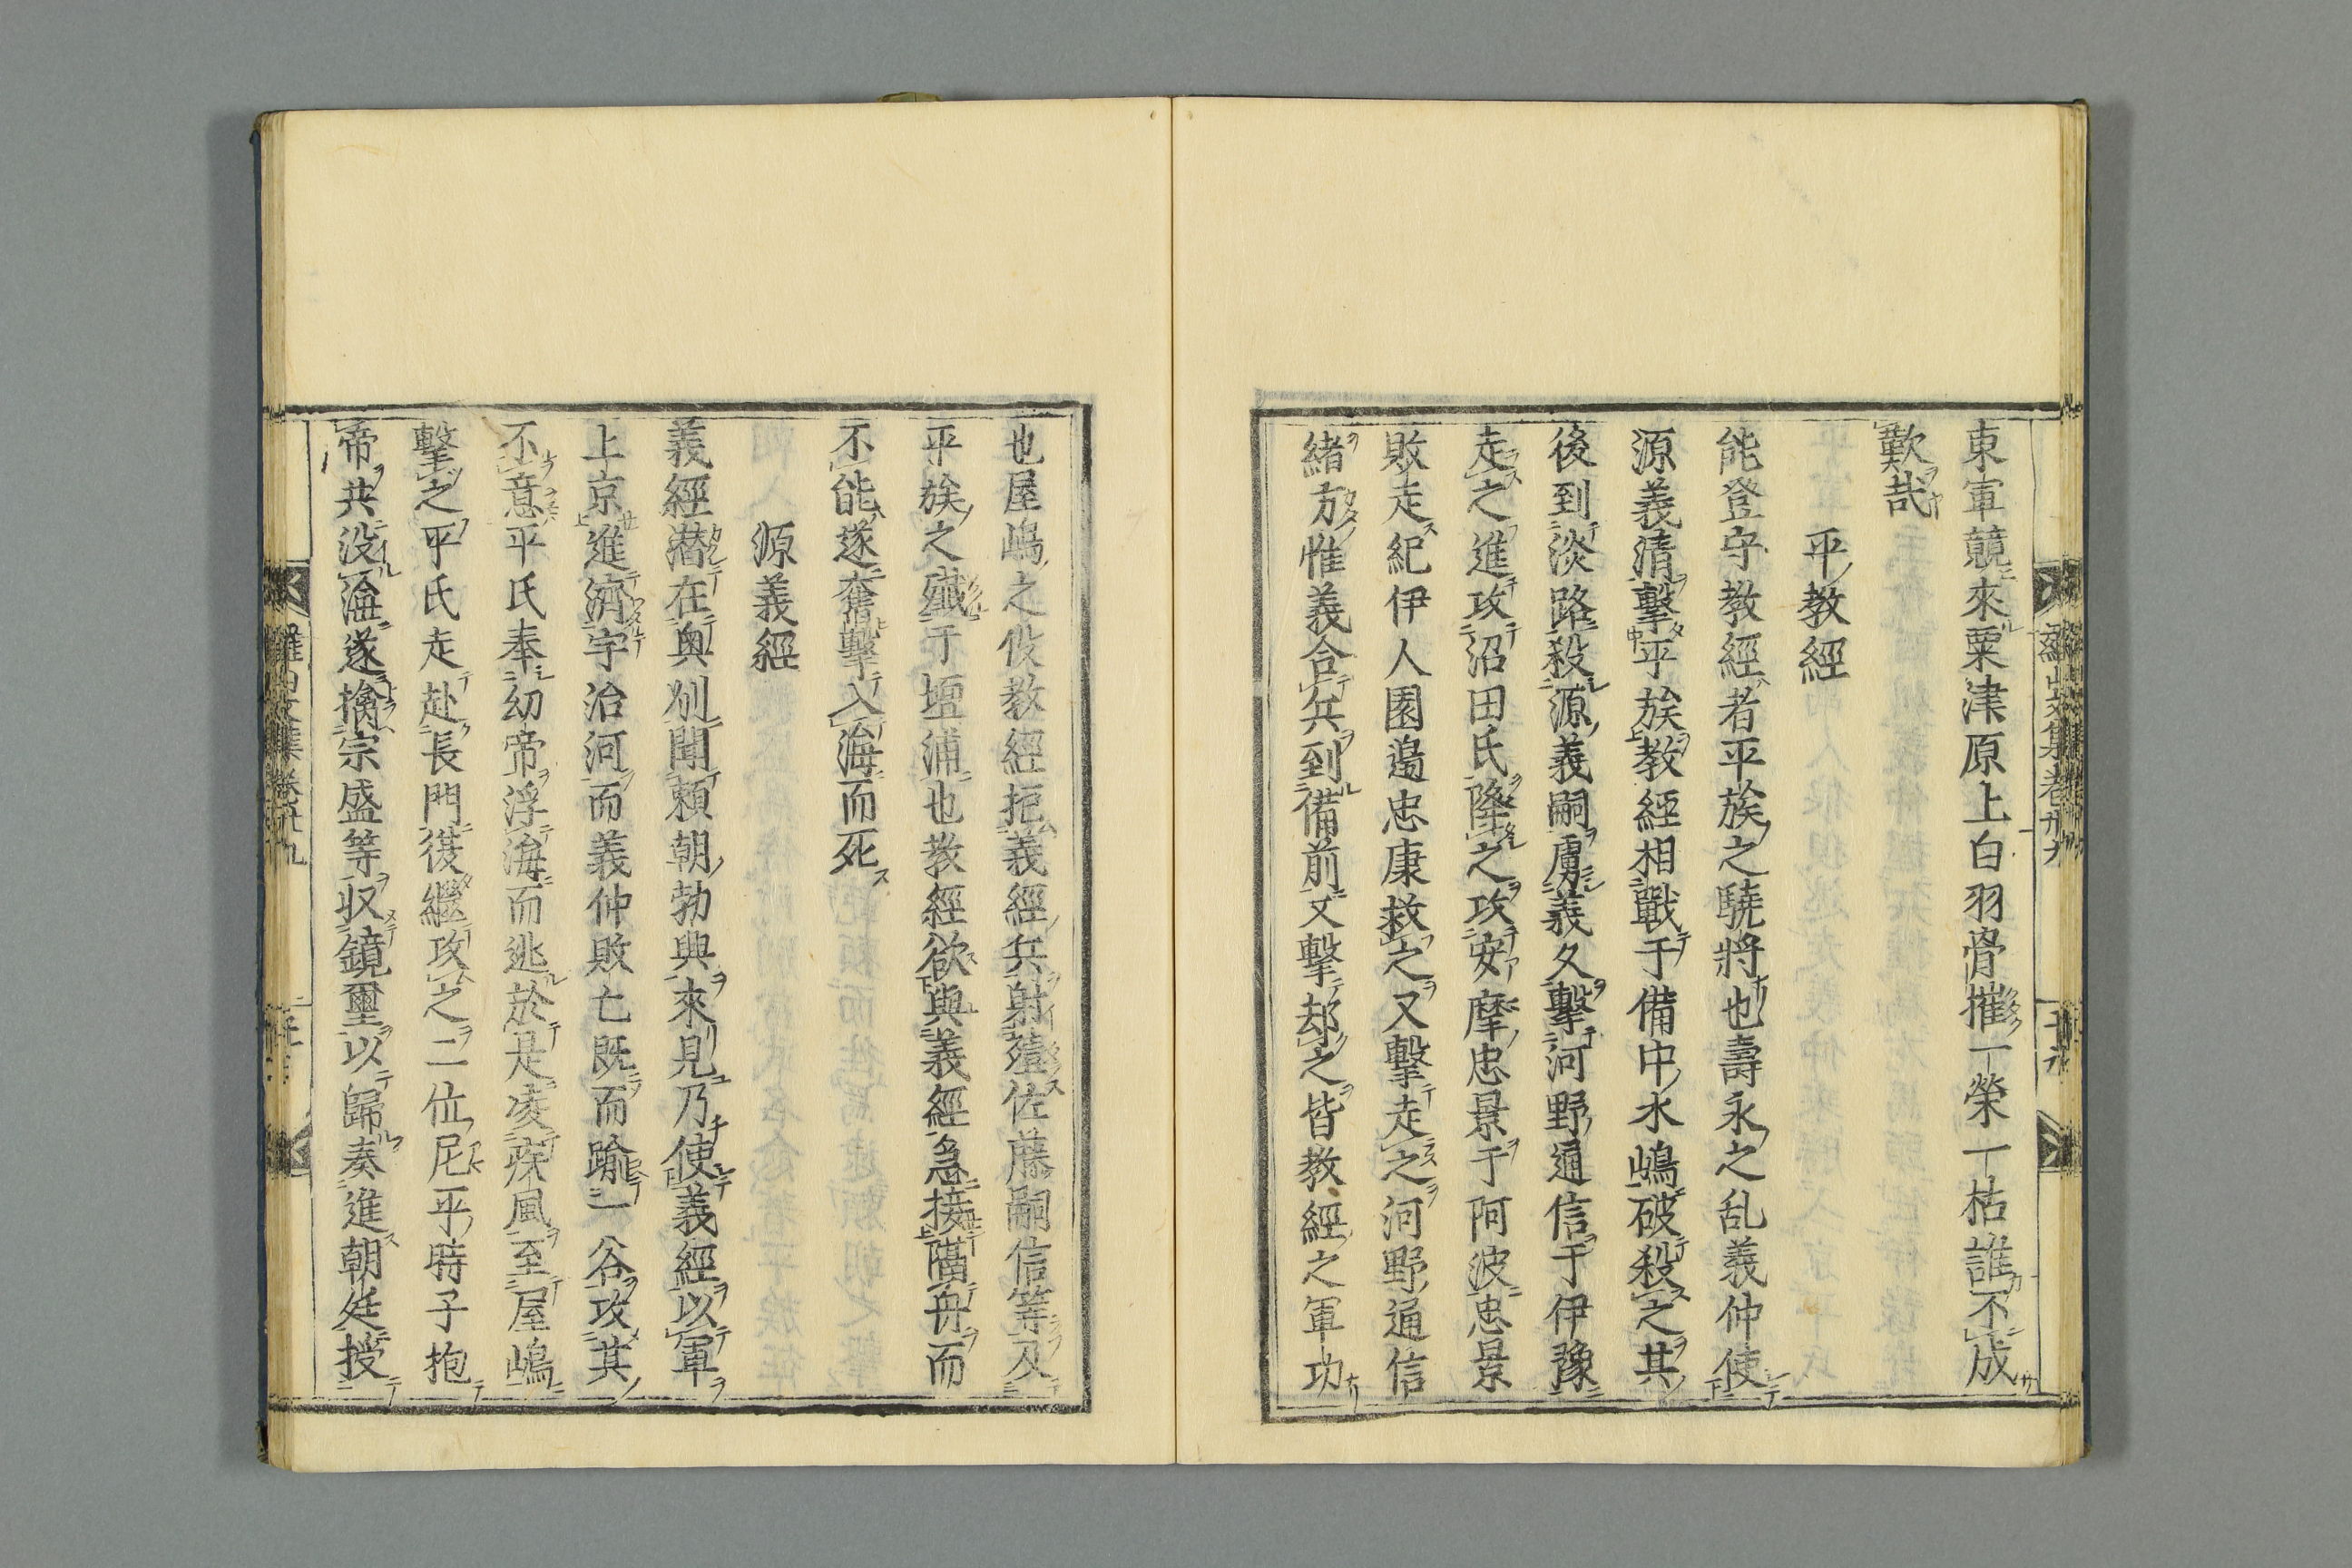 東軍競來粟津原上白羽骨摧一榮一枯誰不成
歎哉
平教經
能登守教經者平族之驍將也壽永之乱義仲使
源義清擊平族教經相戰于備中水嶋破殺之其
後到淡路殺源義嗣虜義久擊河野通信于伊豫
走之進攻沼田氏降之攻安摩忠景于阿波忠景
敗走紀伊人園邉忠康救之又擊走之河野通信
緒方惟義合兵到備前又擊却之皆教經之軍功
也屋嶋之役教經拒義經兵射殪佐藤嗣信等及
平族之殱于壇浦也教經欲與義經急接隣舟而
不能遂奮擊入海而死
源義經
義經潜在奥刕聞頼朝勃興來見乃使義經以軍
上京進濟宇治河而義仲敗亡既而踰一谷攻其
不意平氏奉幼帝浮海而逃於是凌疾風至屋嶋
擊之平氏走赴長門復繼攻之二位尼平時子抱
帝共没淪遂擒宗盛等収鏡璽以歸奏進朝廷授